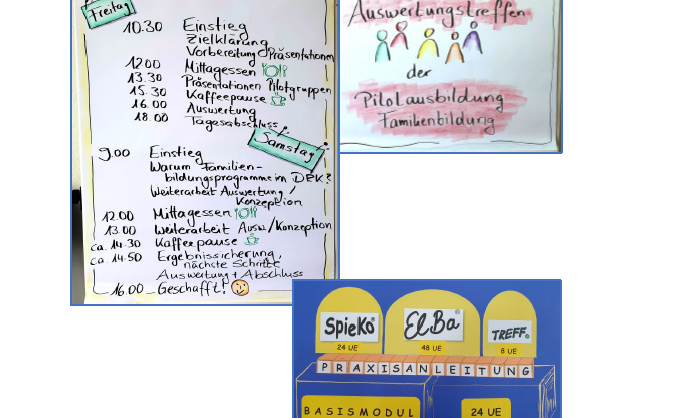 Freitag
10.30 Einstieg
Zielklärung
Vorbereitung Präsentationen
1200 Mittagessen
13.30 Präsentationen Pilotgruppen
15.30 Kaffeepause
16.00 Auswertung
18.00 Tagesabschluss
Samstag
9.00 Einstieg
Warum Familien-
bildungsprogramme im DRK?
Weiterarbeit Auswertung /
Konzeption
12.00 Mittagessen
13.00 Weiterarbeit Ausw./Konzeption
ca. 14.30 Kaffeepause
ca. 14.50 Ergebnissicherung,
nächste Schritte
Auswertung + Abschluss
16.00 Geschafft!
Auswertungstreffen
der
Pilotausbildung
Familienbildung
SpieKo® ElBa® TREFF®
24 UE 48 UE 8 UE
PRAXISANLEITUNG
BASISMODUL 24 UE